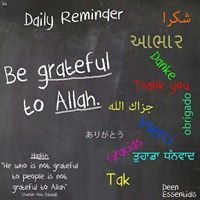 Daily Reminder
شكرا
આભાર
Be grateful
to Allah.
Danke
Thank you
جزاك الله
obrigado
ありがとう
Merci
Gracias
ਤੁਹਾਡਾ ਧੰਨਵਾਦ
Tak
Hadith:
"He who is not grateful
to people is not
grateful to Allah"
Deen
Essentials